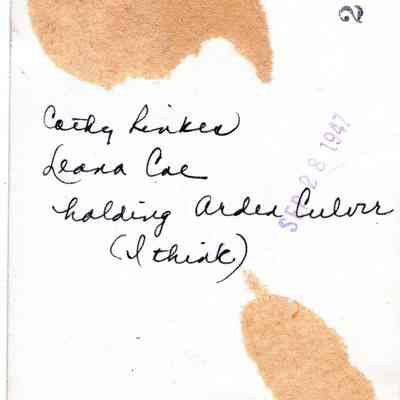 2
Cathy Linkes
Leana Coe
holding Arden Culver
(I think)
SEP 28 1947